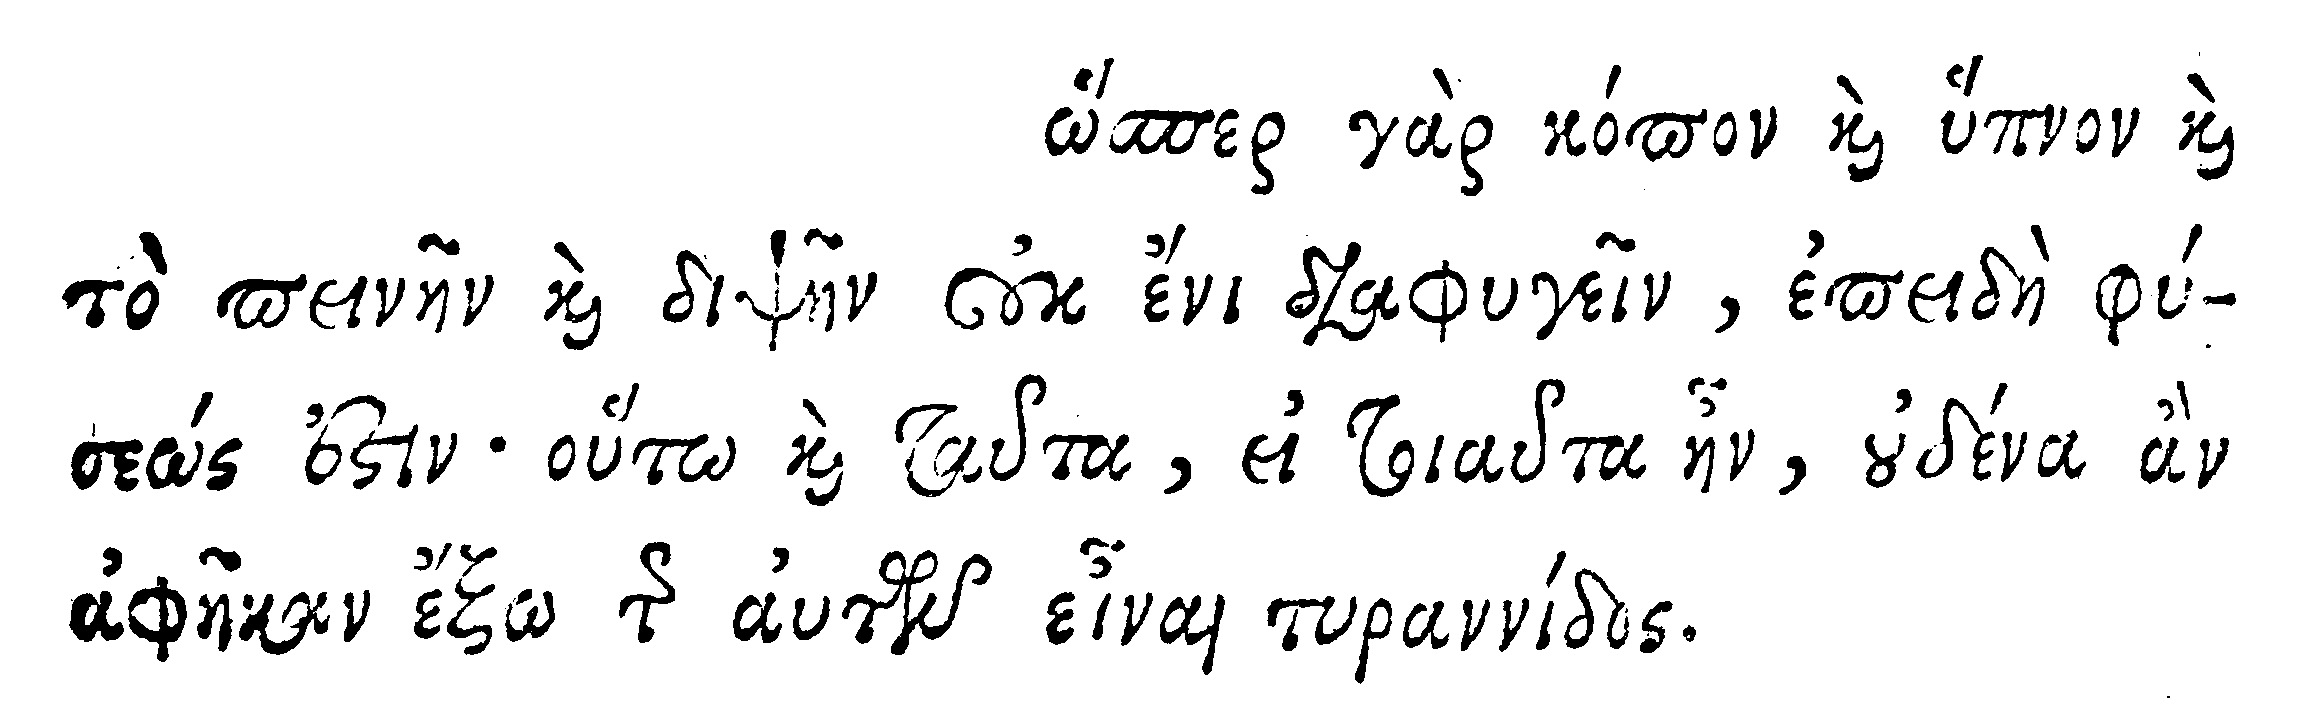 ὥσπερ γὰρ κόπον καὶ ὕπνον καὶ
τὸ πεινῆν καὶ διψῆν οὐκ ἔνι διαφυγεῖν, ἐπειδὴ φύ-
σεώς ἐστιν· οὕτω καὶ ταῦτα, εἰ τοιαῦτα ἦν, οὐδένα ἂν
ἀφῆκαν ἔξω τῆς αὐτῶν εἶναι τυραννίδος.